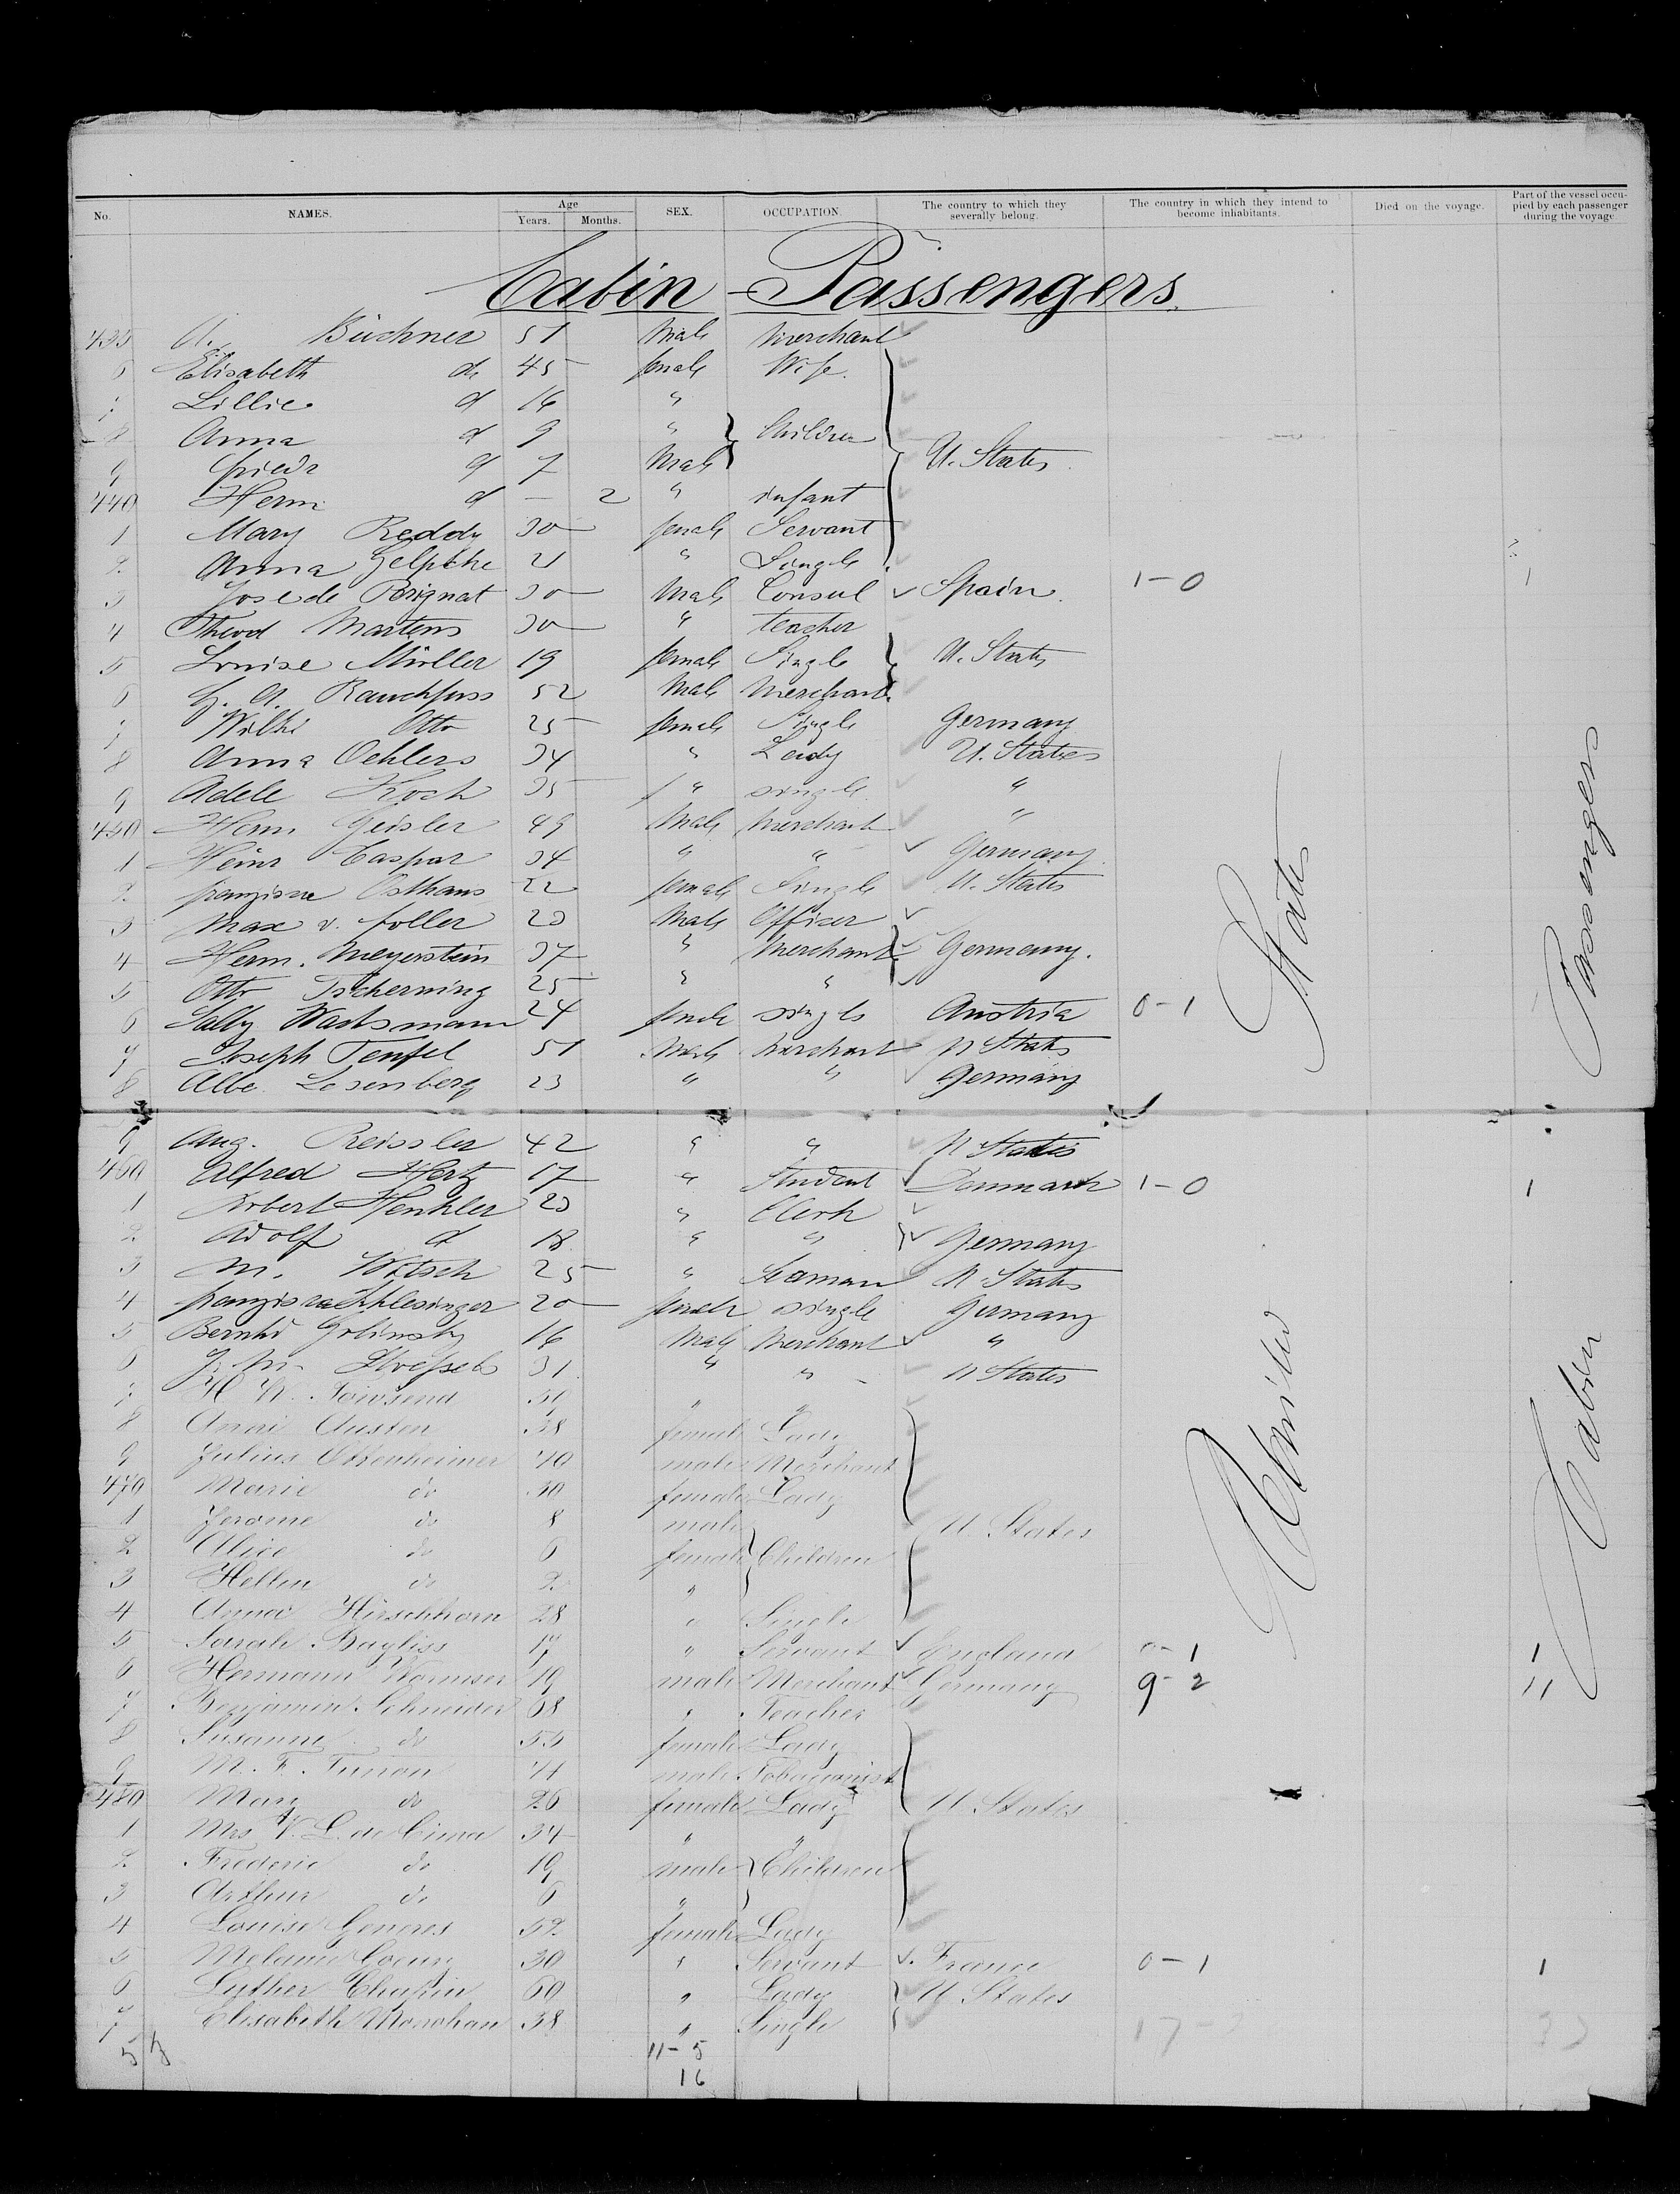 No. NAMES. Age Years. Months. SEX. OCCUPATION The country to which they severally belong. The country in which they intend to become inhabitants. Died on the voyage. Part of the vessel occupied by each passenger during the voyage
Cabin-Passengers.
435 A. Büchner 51 Male Merchant
6 Elisabeth do 45 female Wife.
7 Lillie d 16 "
8 Anna d 9 " Children
9 friedr d 7 Male U. States.
440 Herm d - 2 " infant
1 Mary Reddy 30 female Servant
2 Anna Gelpthe 21 " Single
3 Jose de Perignat 30 Male Consul Spain. 1-0 1
4 Theod Martens 30 " teacher
5 Louise Müller 19 female Single U. States
6 G. A. Rauchfuss 52 Male Merchant
7 Otto 25 female Single Germany
8 Anna Oehlers 34 " Lady U. States
9 Adele Koch 35 " single "
450 Herm Geisler 49 Male Merchant "
1 Heinr Caspar 34 " " Germany
2 franziska Osthaus 22 female Single U. States
3 Max v. 23 Male Officer
4 Herm. Meyerstein 37 " Merchant Germany.
5 Otto Tscherning 25 " "
6 Sally 24 female single Austria 0-1
7 Joseph Teufel 51 Male Merchant U States
8 Albe. Lesenberg 23 " " Germany
9 Aug. Reissler 42 " " U States
460 Alfred Hertz 17 " Student Danmark 1-0 1
1 Robert Henkler 23 " Clerk
2 Adolf d 18 " " Germany
3 M. 25 " Seaman U. States
4 franziska Schlesinger 20 female single Germany
5 Bernhd Golinsky 16 Male Merchant "
6 31 " " U States
7 H. W. Townsend 51 " "
8 Annie Austen 38 female Lady
9 Julius Ottenheimer 40 male Merchant
470 Marie do 30 female Lady
1 Jerome do 8 male U. States
2 Alice do 6 female Children
3 Hellen do 2 "
4 Anna Hirschhorn 28 " Single
5 Sarah Bayliss 17 " Servant England 0-1 1
6 Hermann Wormser 19 male Merchant Germany 9-2 11
7 Benjamin Schneider 68 " Teacher
8 Susanne do 55 female Lady
9 M. F. 41 male Tobacconist
480 Mary do 26 female Lady U. States
1 Mrs V. L. de Cima 34 " "
2 Frederic do 19 male Children
3 Arthur do 6 "
4 Louise Generes 52 female Lady
5 Melanie 30 " Servant France 0-1 1
6 Luther Chapin 60 " Lady U. States
7 Elisabeth Monohan 38 " Single
53 11-5
16
United States
Cabin Passengers